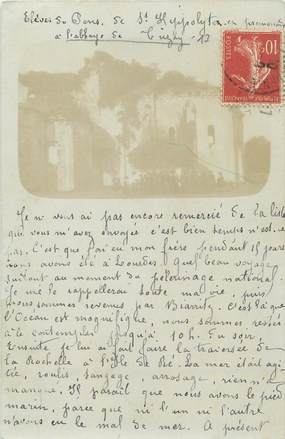 Elèves du Pens. de St Hippolyte en promenade
à l'abbaye de
Je ne vous ai pas encore remercié de la liste
que vous m'avez envoyée c'est bien temps n'est-ce
pas. C'est que j'ai eu mon frère pendant 15 jours
nous avons été à Lourdes Quel beau voyage
surtout au moment du pèlerinage national.
Je me le rappellerai toute ma vie, puis
nous sommes revenus par Biarritz. C'est là que
l'Océan est magnifique, nous sommes restés
à le contempler jusqu'à 10h. du soir.
Ensuite je lui ai fait faire la traversée de
la Rochelle à l'Ile de Ré. La mer était agi-
tée, roulis tangage, arrosage, rien n'a
manqué. Il paraît que nous avons le pied
marin, parce que ni l'un ni l'autre
n'avons eu le mal de mer. A présent
POSTES
10c